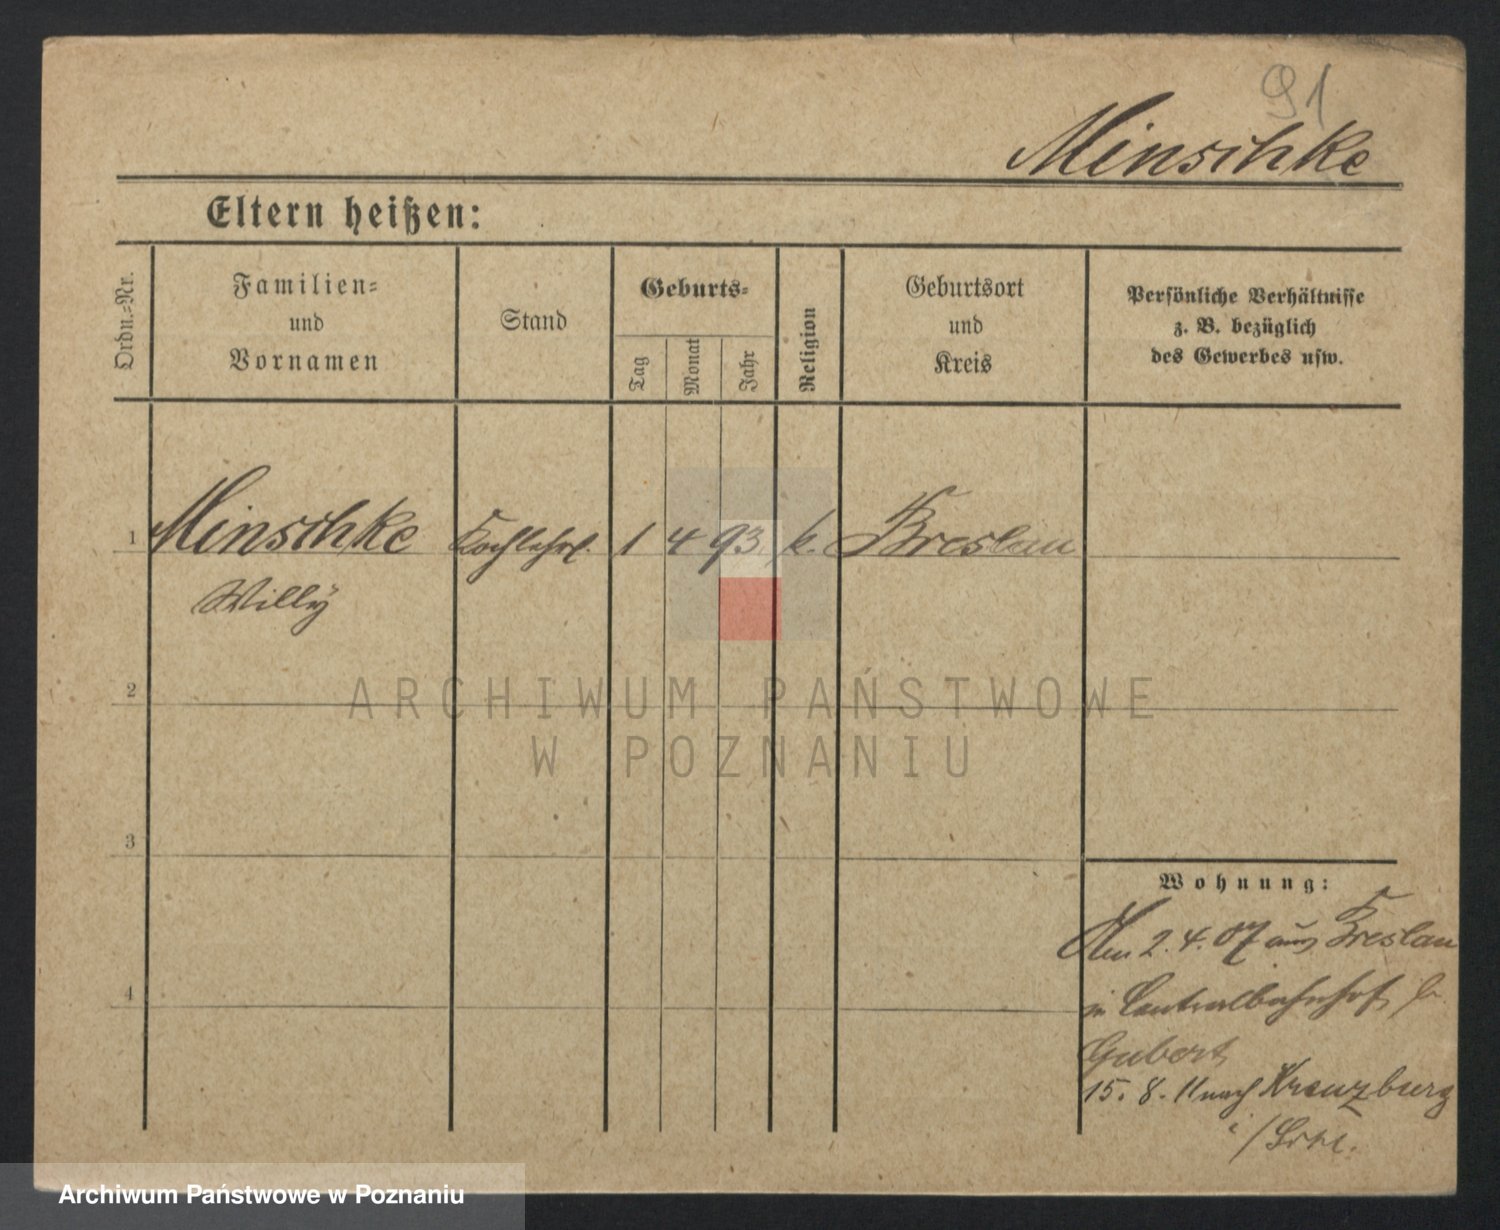 91
Minschke
Eltern heißen:
Ordn.-Nr.
Familien-
und
Vornamen
Stand
Geburts-
Tag
Monat
Jahr
Religion
Geburtsort
und
Kreis
Persönliche Verhältnisse
z. B. bezüglich
des Gewerbes usw.
1 Minschke Kochlehrl. 1 4 93 k. Breslau
Willy
2
ARCHIWUM PAŃSTWOWE
W POZNANIU
3
Wohnung:
Am 2. 4. 07 aus Breslau
in Centralbahnhof b.
4
Gubert
15. 8. 11 nach Kreuzburg
Archiwum Państwowe w Poznaniu